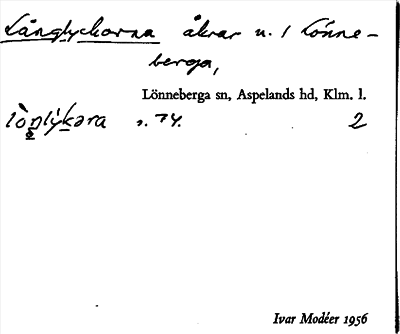 Långlyckorna åkrar n. 1 Lönne-
berga,
Lönneberga sn, Aspelands hd, Klm. l.
lòŋlýkəra s. 74. 2
Ivar Modéer 1956